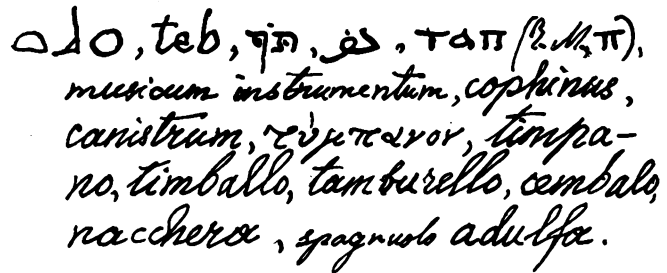 teb, תף, دف, ⲧⲁⲡ (B. M. ⲡ),
musicum instrumentum, cophinus,
canistrum, τύμπανον, timpa-
no, timballo, tamburello, cembalo,
nacchera, spagnuolo adulfa.